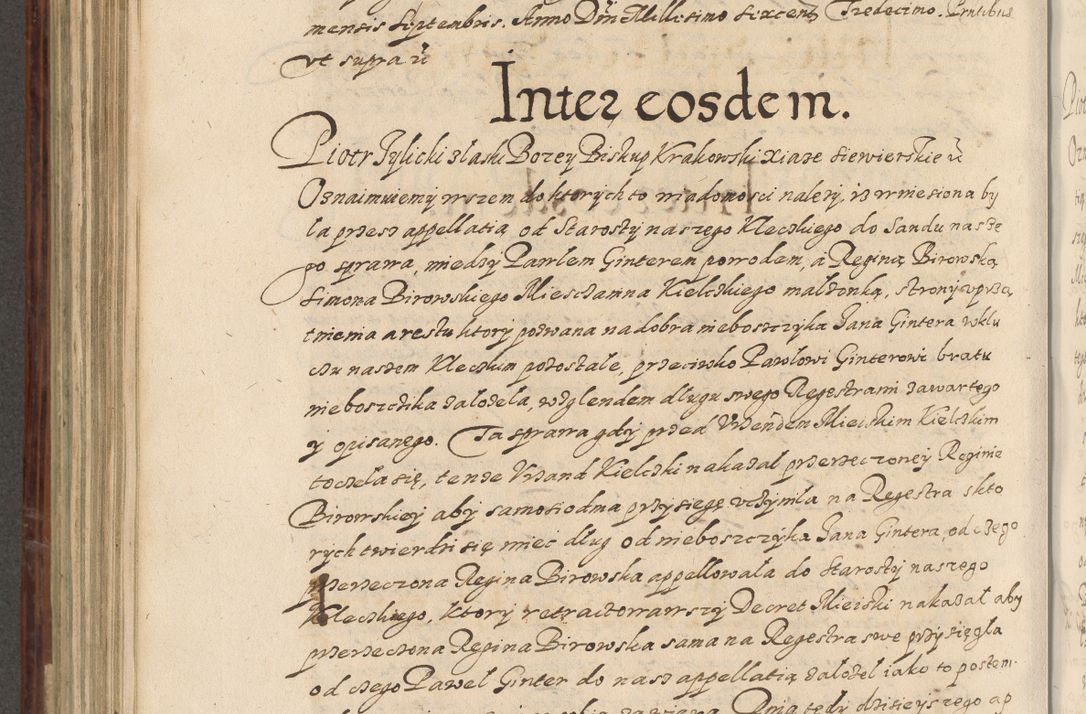 mensis Septembris. Anno Dni Millesimo sexcent Tredecimo. Pntibus
vt supra
Inter eosdem.
Piotr Tylicki z laski Bozey Biskup Krakowski xiaze Siewierskie
Oznaimuiemy wszem do ktorych to wiadomosci nalezy, iz wniesiona by
la przesz appellatią od Starosty naszego Kleczkiego do Sandu nasze
go sprawa, miedzy Pawlem Ginterem powodem, a Reginą Birowską
Simona Birowskiego Miesczanina Kielczkiego malzonką, strony
tnienia arestu ktory pozwana na dobra nieboszczyka Jana Gintera w klu
czu naszem Kleczkim pozostale, przeciwko Pawlowi Ginterowi bratu
nieboszczika zalozela, wzglendem dlugu swego Regestrami zawartego
y opisanego. Ta sprawa gdy przed Vrzendem Mieiskim Kielzkim
toczela się, tenze Vrzand Kielczki nakazal przerzeczoney Reginie
Birowskiey aby samosiodma przysięgę vczynila na Regestra z kto
rych twierdzi się miec dlug od nieboszczyka Jana Gintera, od czego
przerzeczona Regina Birowska appellowala do Starosty naszego
Kleczkiego, ktory retractowawszy Decret Mieiski nakazal aby
przerzeczona Regina Birowska sama na Regestra swe przysięgla
od czego Pawel Ginter do nasz appellatią zalozel iako to postem.